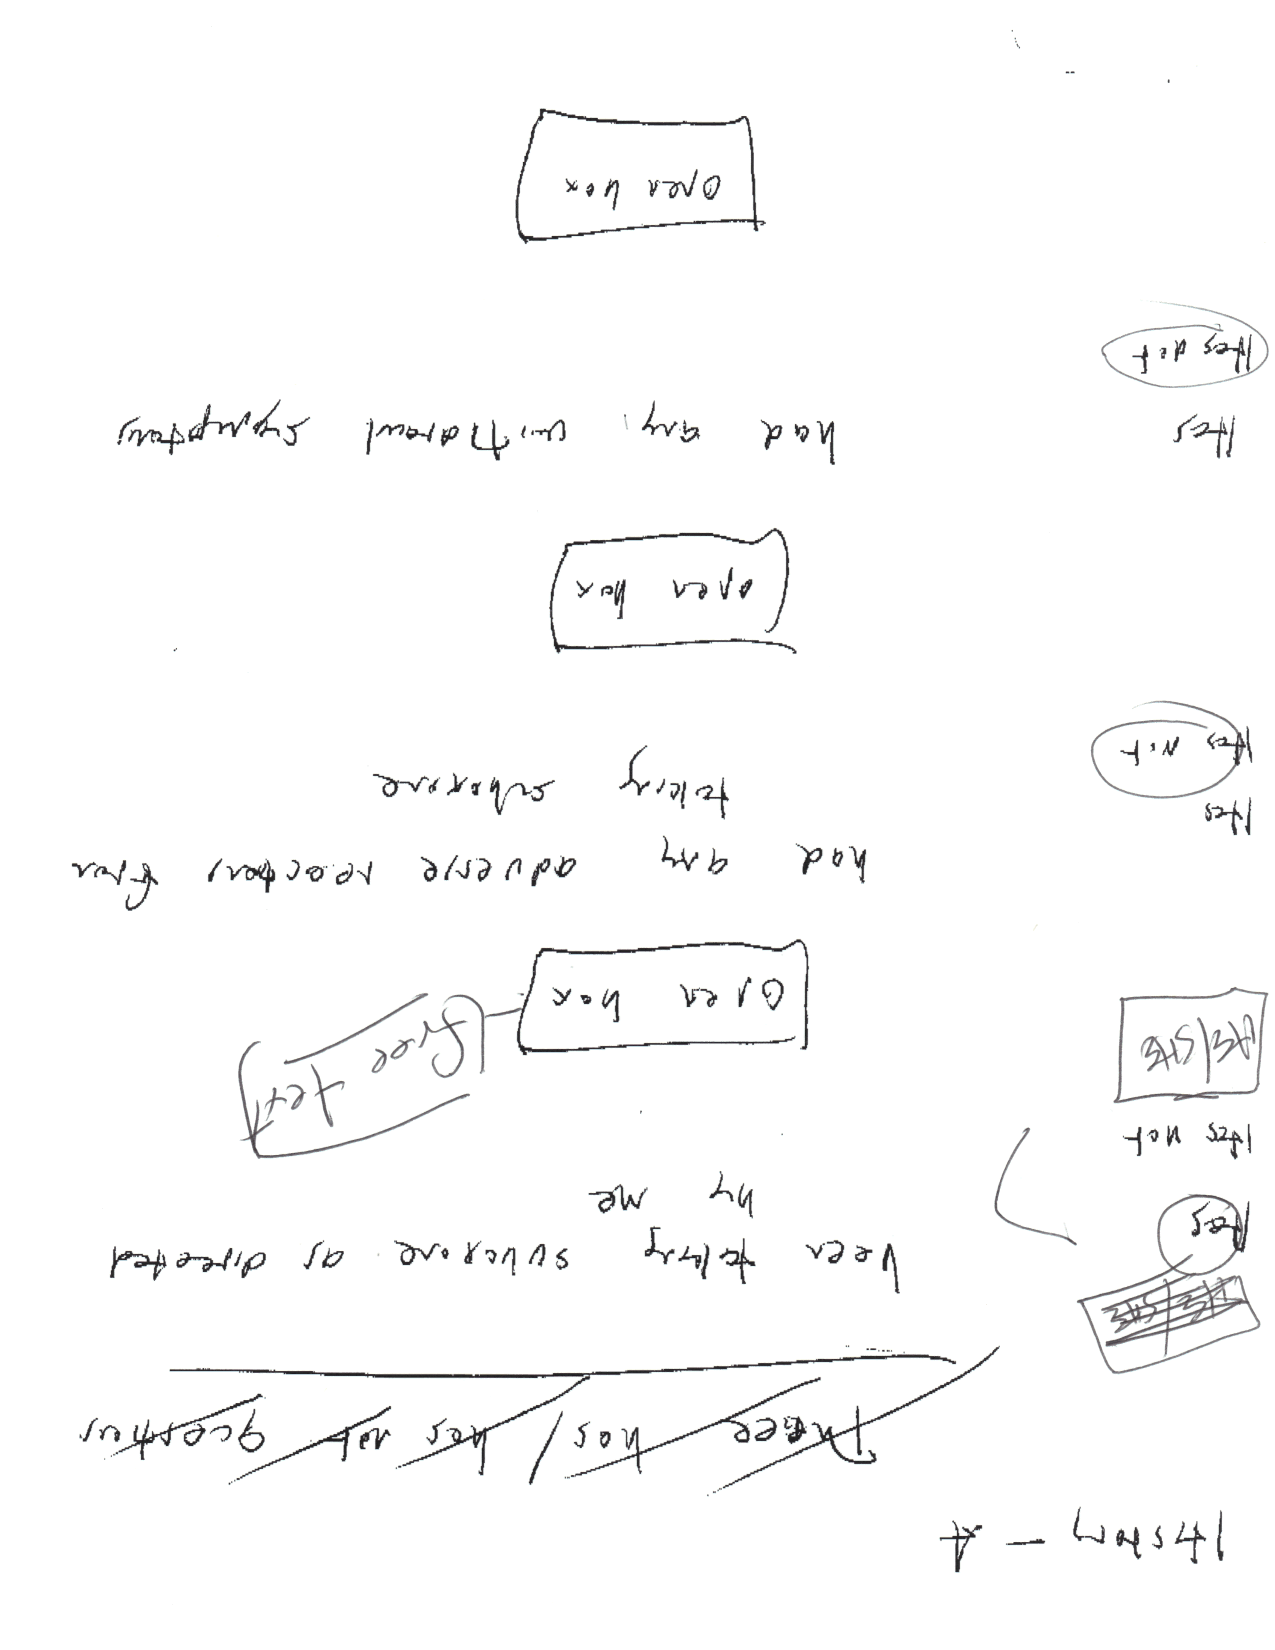 History - A
Three has / has not questions
HE/SHE
Has been taking suboxone as directed
by me
Has not
HE/SHE
Free text
Open box
Has had any adverse reactions from
Has not taking suboxone
Open box
Has had any withdrawl symptoms
Has not
Open box